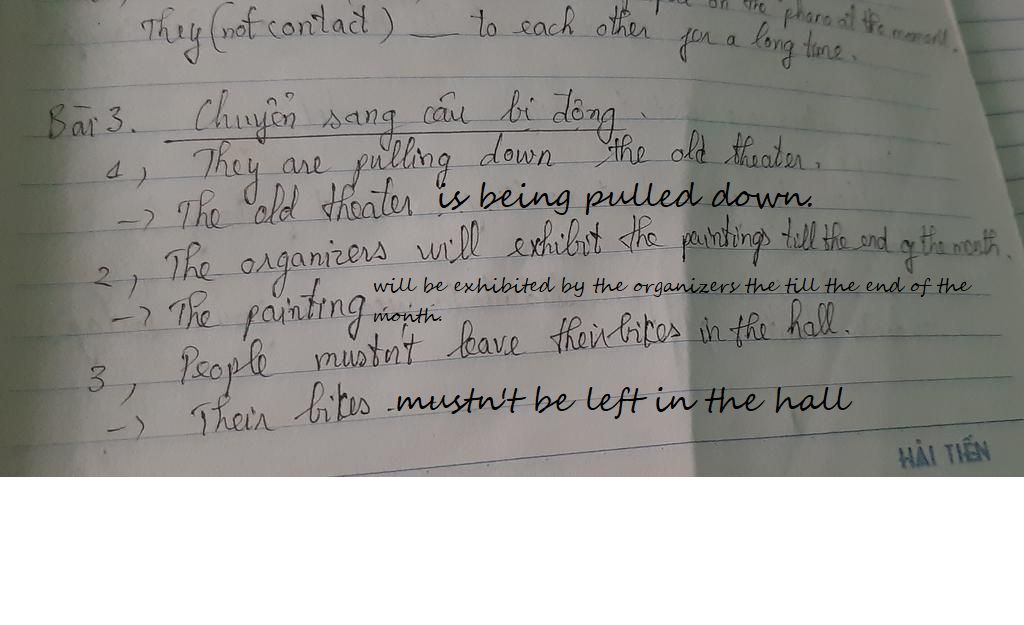 on the phone at the moment.
They (not contact) __ to each other for a long time.
Bài 3. Chuyển sang câu bị động.
1, They are pulling down the old theater.
-> The old theater is being pulled down.
2, The organizers will exhibit the paintings till the end of the month.
-> The painting will be exhibited by the organizers the till the end of the
month.
3, People mustn't leave their bikes in the hall.
-> Their bikes mustn't be left in the hall
HẢI TIẾN